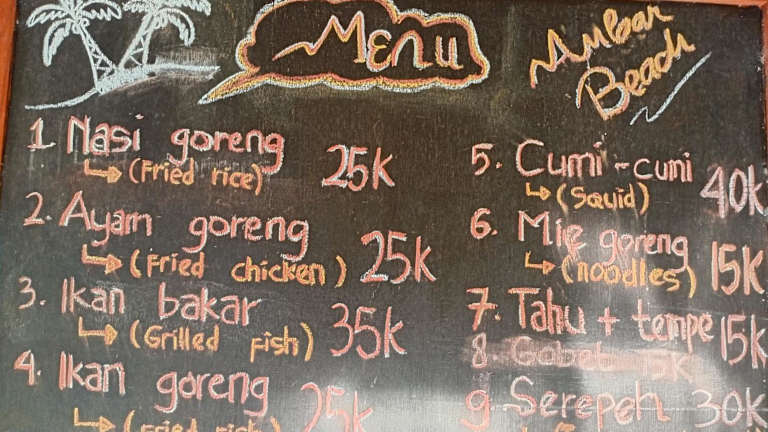 Menu
Ambar
Beach
1 Nasi goreng 25k
(Fried rice)
2. Ayam goreng 25k
(Fried chicken)
3. Ikan bakar 35k
(Grilled fish)
4. Ikan goreng 25k
5. Cumi-cumi 40k
(Squid)
6. Mie goreng 15k
(noodles)
7. Tahu + tempe 15k
8.
9 Serepeh 30k